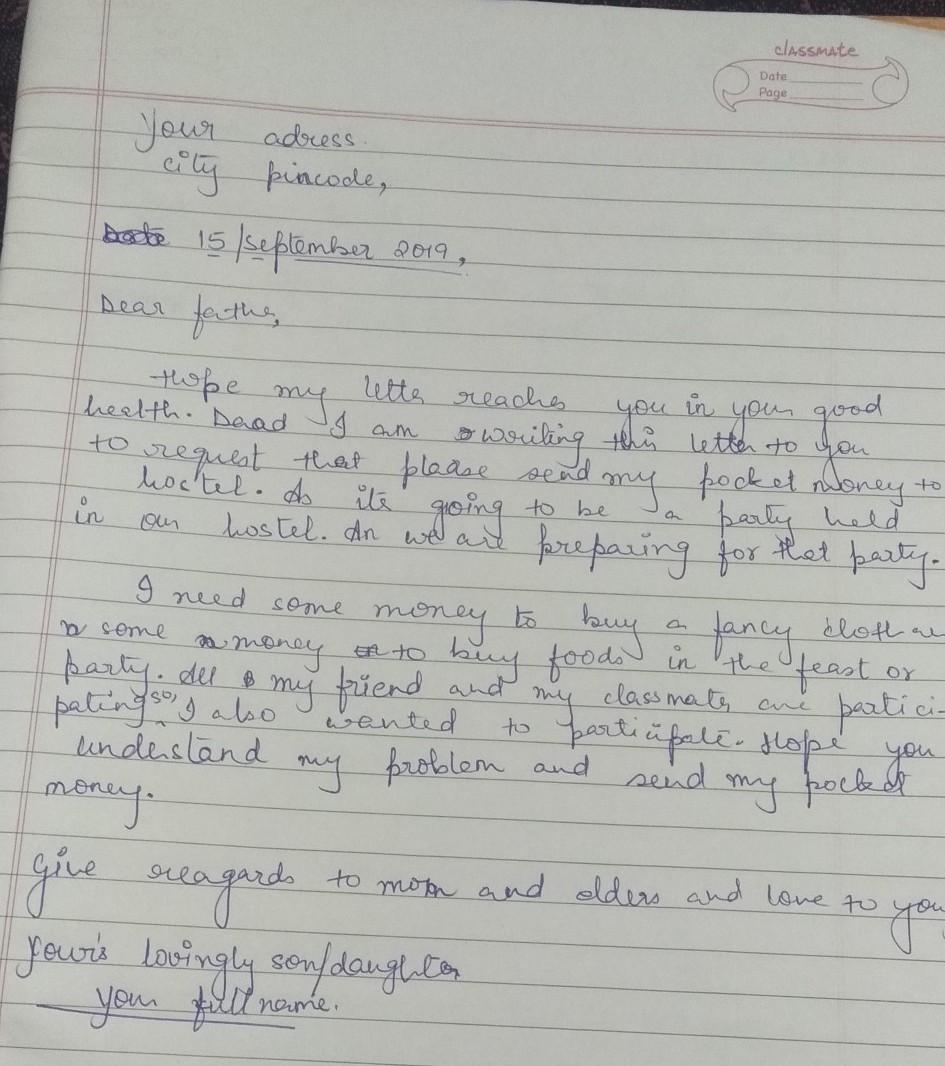 classmate
Date
Page
Your adress.
city pincode,
Date 15/September 2019,
Dear father,
Hope my letter reaches you in your good
health. Daad I am writing this letter to you
to request that please send my pocket money to
hostel. As its going to be a party held
in our hostel. An we are preparing for that party.
I need some money to buy a fancy cloth
some money to buy foods in the feast or
party. All my friend and my classmates are partici-
pating so, I also wanted to participate. Hope you
understand my problem and send my pocket
money.
Give reagards to mom and elders and love to you
Your's lovingly son/daughter
your full name.